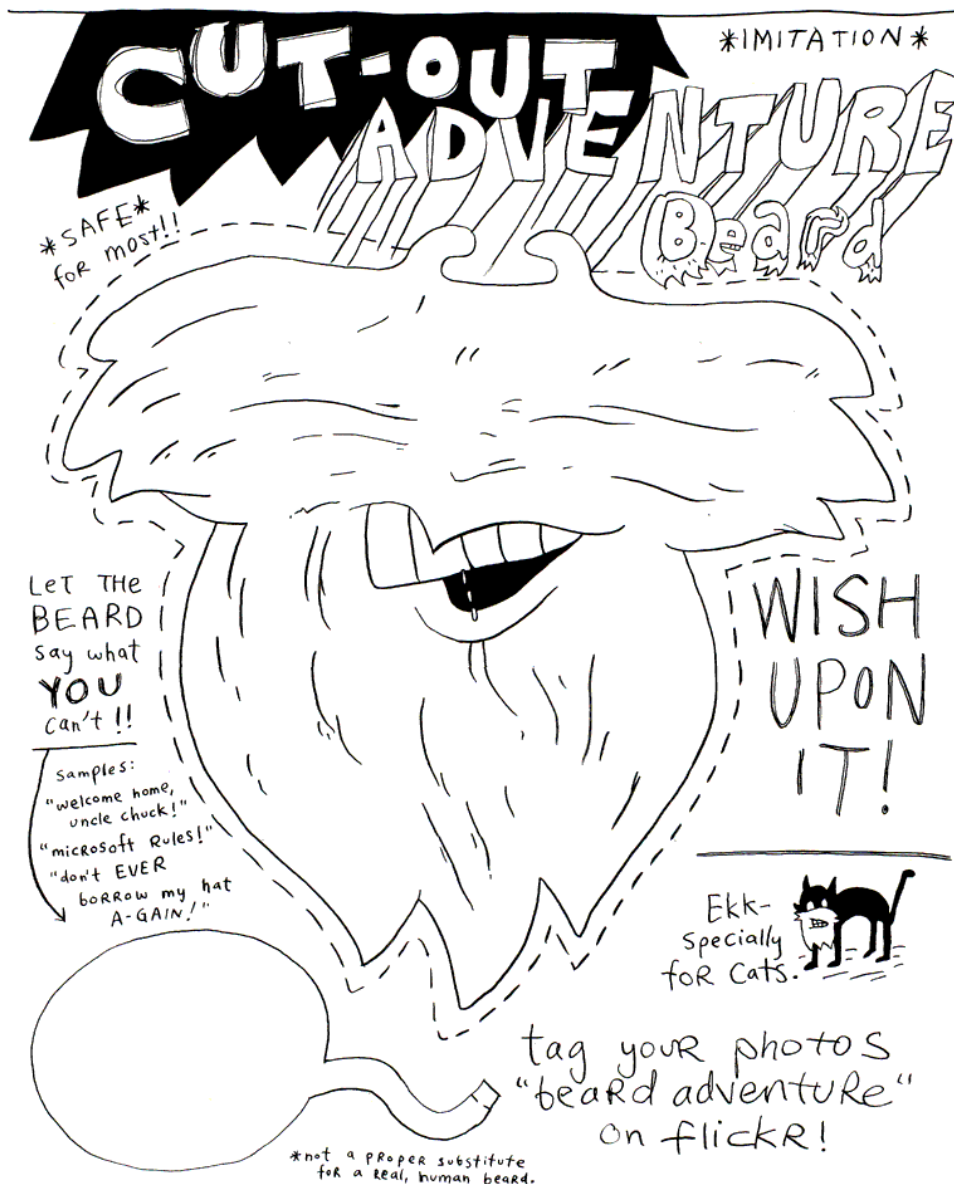 CUT-OUT
*IMITATION*
ADVENTURE
Beard
*SAFE*
foR most!!
LeT THe
BEARD
say what
YOU
can't !!
samples:
"welcome home,
uncle chuck!"
"micRosoft Rules!"
"don't EVER
boRRow my hat
A-GAIN!"
WISH
UPON
IT!
Ekk-
specially
foR cats.
tag youR photos
"beaRd adventuRe"
on flickR!
*not a pRopeR substitute
foR a Real, human beaRd.